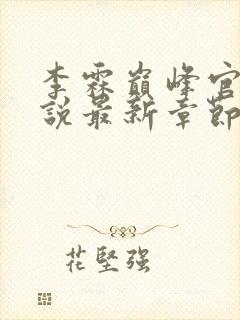 李霖巅峰官
說最新章節
花堅強